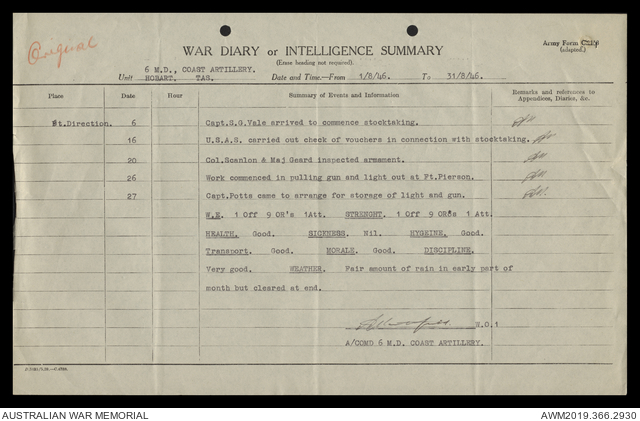 Original
WAR DIARY or INTELLIGENCE SUMMARY
(Erase heading not required).
Army Form
(adapted.)
6 M.D., COAST ARTILLERY.
Unit HOBART. TAS. Date and Time.—From 1/8/46. To 31/8/46.
Place Date Hour Summary of Events and Information Remarks and references to Appendices, Diaries, &c.
Pt.Direction. 6 Capt.S.G.Vale arrived to commence stocktaking.
16 U.S.A.S. carried out check of vouchers in connection with stocktaking.
20 Col.Scanlon & Maj Geard inspected armament.
26 Work commenced in pulling gun and light out at Ft.Pierson.
27 Capt.Potts came to arrange for storage of light and gun.
W.E. 1 Off 9 OR's 1Att. STRENGHT. 1 Off 9 ORs 1 Att.
HEALTH. Good. SICKNESS. Nil. HYGEINE. Good.
Transport. Good. MORALE. Good. DISCIPLINE.
Very good. WEATHER. Fair amount of rain in early part of
month but cleared at end.
W.O.1
A/COMD 6 M.D. COAST ARTILLERY.
AUSTRALIAN WAR MEMORIAL AWM2019.366.2930